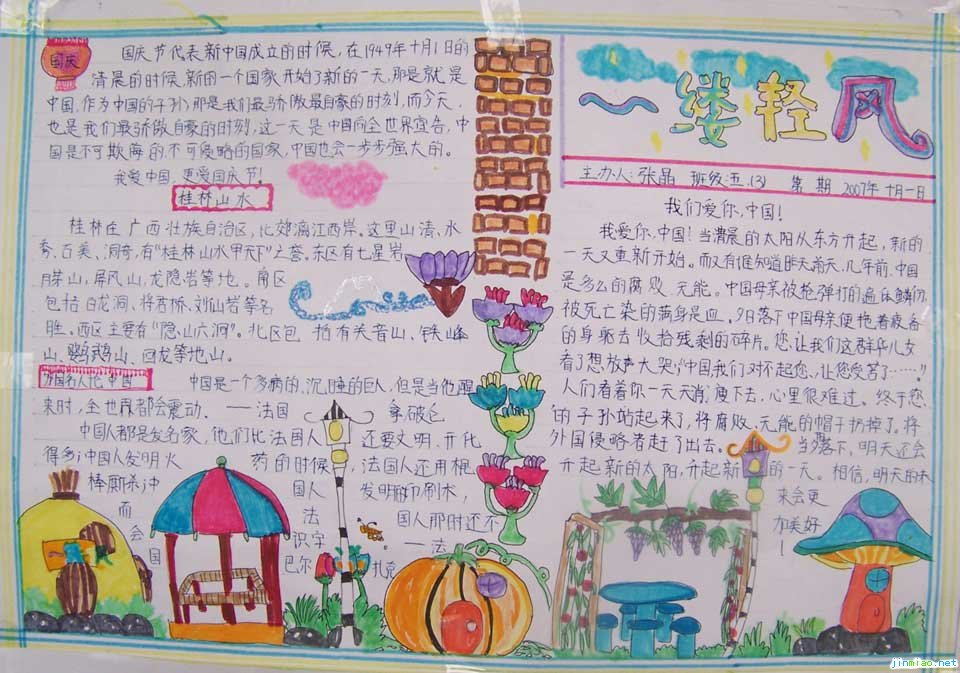 国庆
国庆节代表新中国成立的时候，在1949年十月1日的
清晨的时候，新的一个国家开始了新的一天，那是就是
中国，作为中国的子孙那是我们最骄傲最自豪的时刻，而今天，
也是我们最骄傲自豪的时刻，这一天是中国向全世界宣告，中
国是不可欺侮的，不可侵略的国家，中国也会一步步强大的。
我爱中国，更爱国庆节！
桂林山水
桂林在广西壮族自治区，北郊漓江西岸。这里山清、水
秀、石美、洞奇，有“桂林山水甲天下”之誉。东区有七星岩
月牙山，屏风山，龙隐岩等地。南区
包括白龙洞、将军桥、刘仙岩等名
胜。西区主要有“隐山六洞”。北区包括有
山、鹦鹉山、回龙等地山。
万国名人论中国
中国是一个多病的、沉睡的巨人，但是当他醒
来时，全世界都会震动。——法国 拿破仑
中国人都是发名家，他们比法国人 还要文明、开化
得多；中国人发明火 药的时候，法国人还用棍
棒厮杀；中 国人 发明印刷术，
而 法 国人那时还不
会 识字 ——法
国 巴尔 扎克
一缕轻风
主办人：张晶 班级五(3) 第 期 2007年十月一日
我们爱你，中国！
我爱你，中国！当清晨的太阳从东方升起，新的
一天又重新开始。而又有谁知道昨天前天，几年前，中国
是多么的腐败、无能。中国母亲被枪弹打的遍体鳞伤，
被死亡染的满身是血。夕日落下中国母亲便拖着疲备
的身躯去收拾残剩的碎片。您，让我们这群华儿女
看了想放声大哭：“中国我们对不起您，让您受苦了……”
人们看着你一天天消瘦下去，心里很难过。终于您
的子孙站起来了，将腐败、无能的帽子扔掉了，将
外国侵略者赶了出去。当夕落下，明天还会
升起新的太阳，升起新的一天。相信，明天的未
来会更
加美好
！
jinmiao.net